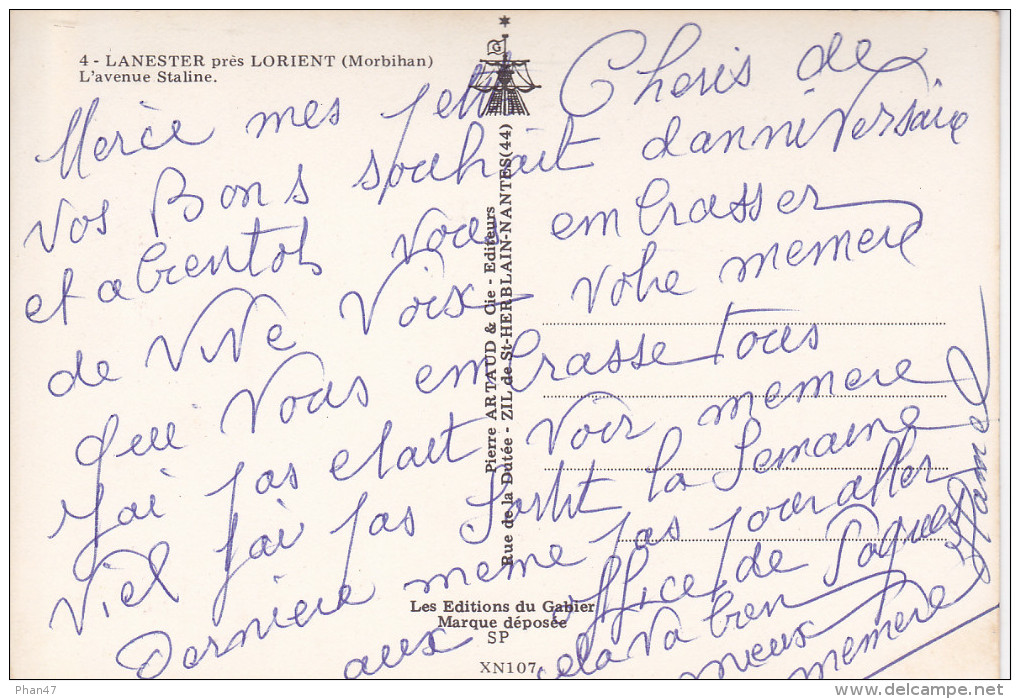 4 - LANESTER près LORIENT (Morbihan)
L'avenue Staline.
Mercie mes petit Cheris de
vos Bons souhait d'anniversaire
et a bientots vous embrasser
de ViVe Voix votre memere
qui Vous embrasse tous
J'ai pas etait Voir memere
Viel j'ai pas Sortit la Semaine
Derniere meme pas pour aller
aux office de Paques
cela va bien
mieux
memere
Pierre ARTAUD & Cie - Editeurs
Rue de la Dutée - ZIL de St-HERBLAIN-NANTES (44)
Les Editions du Gabier
Marque déposée
SP
XN107
Phan47
delcampe.net